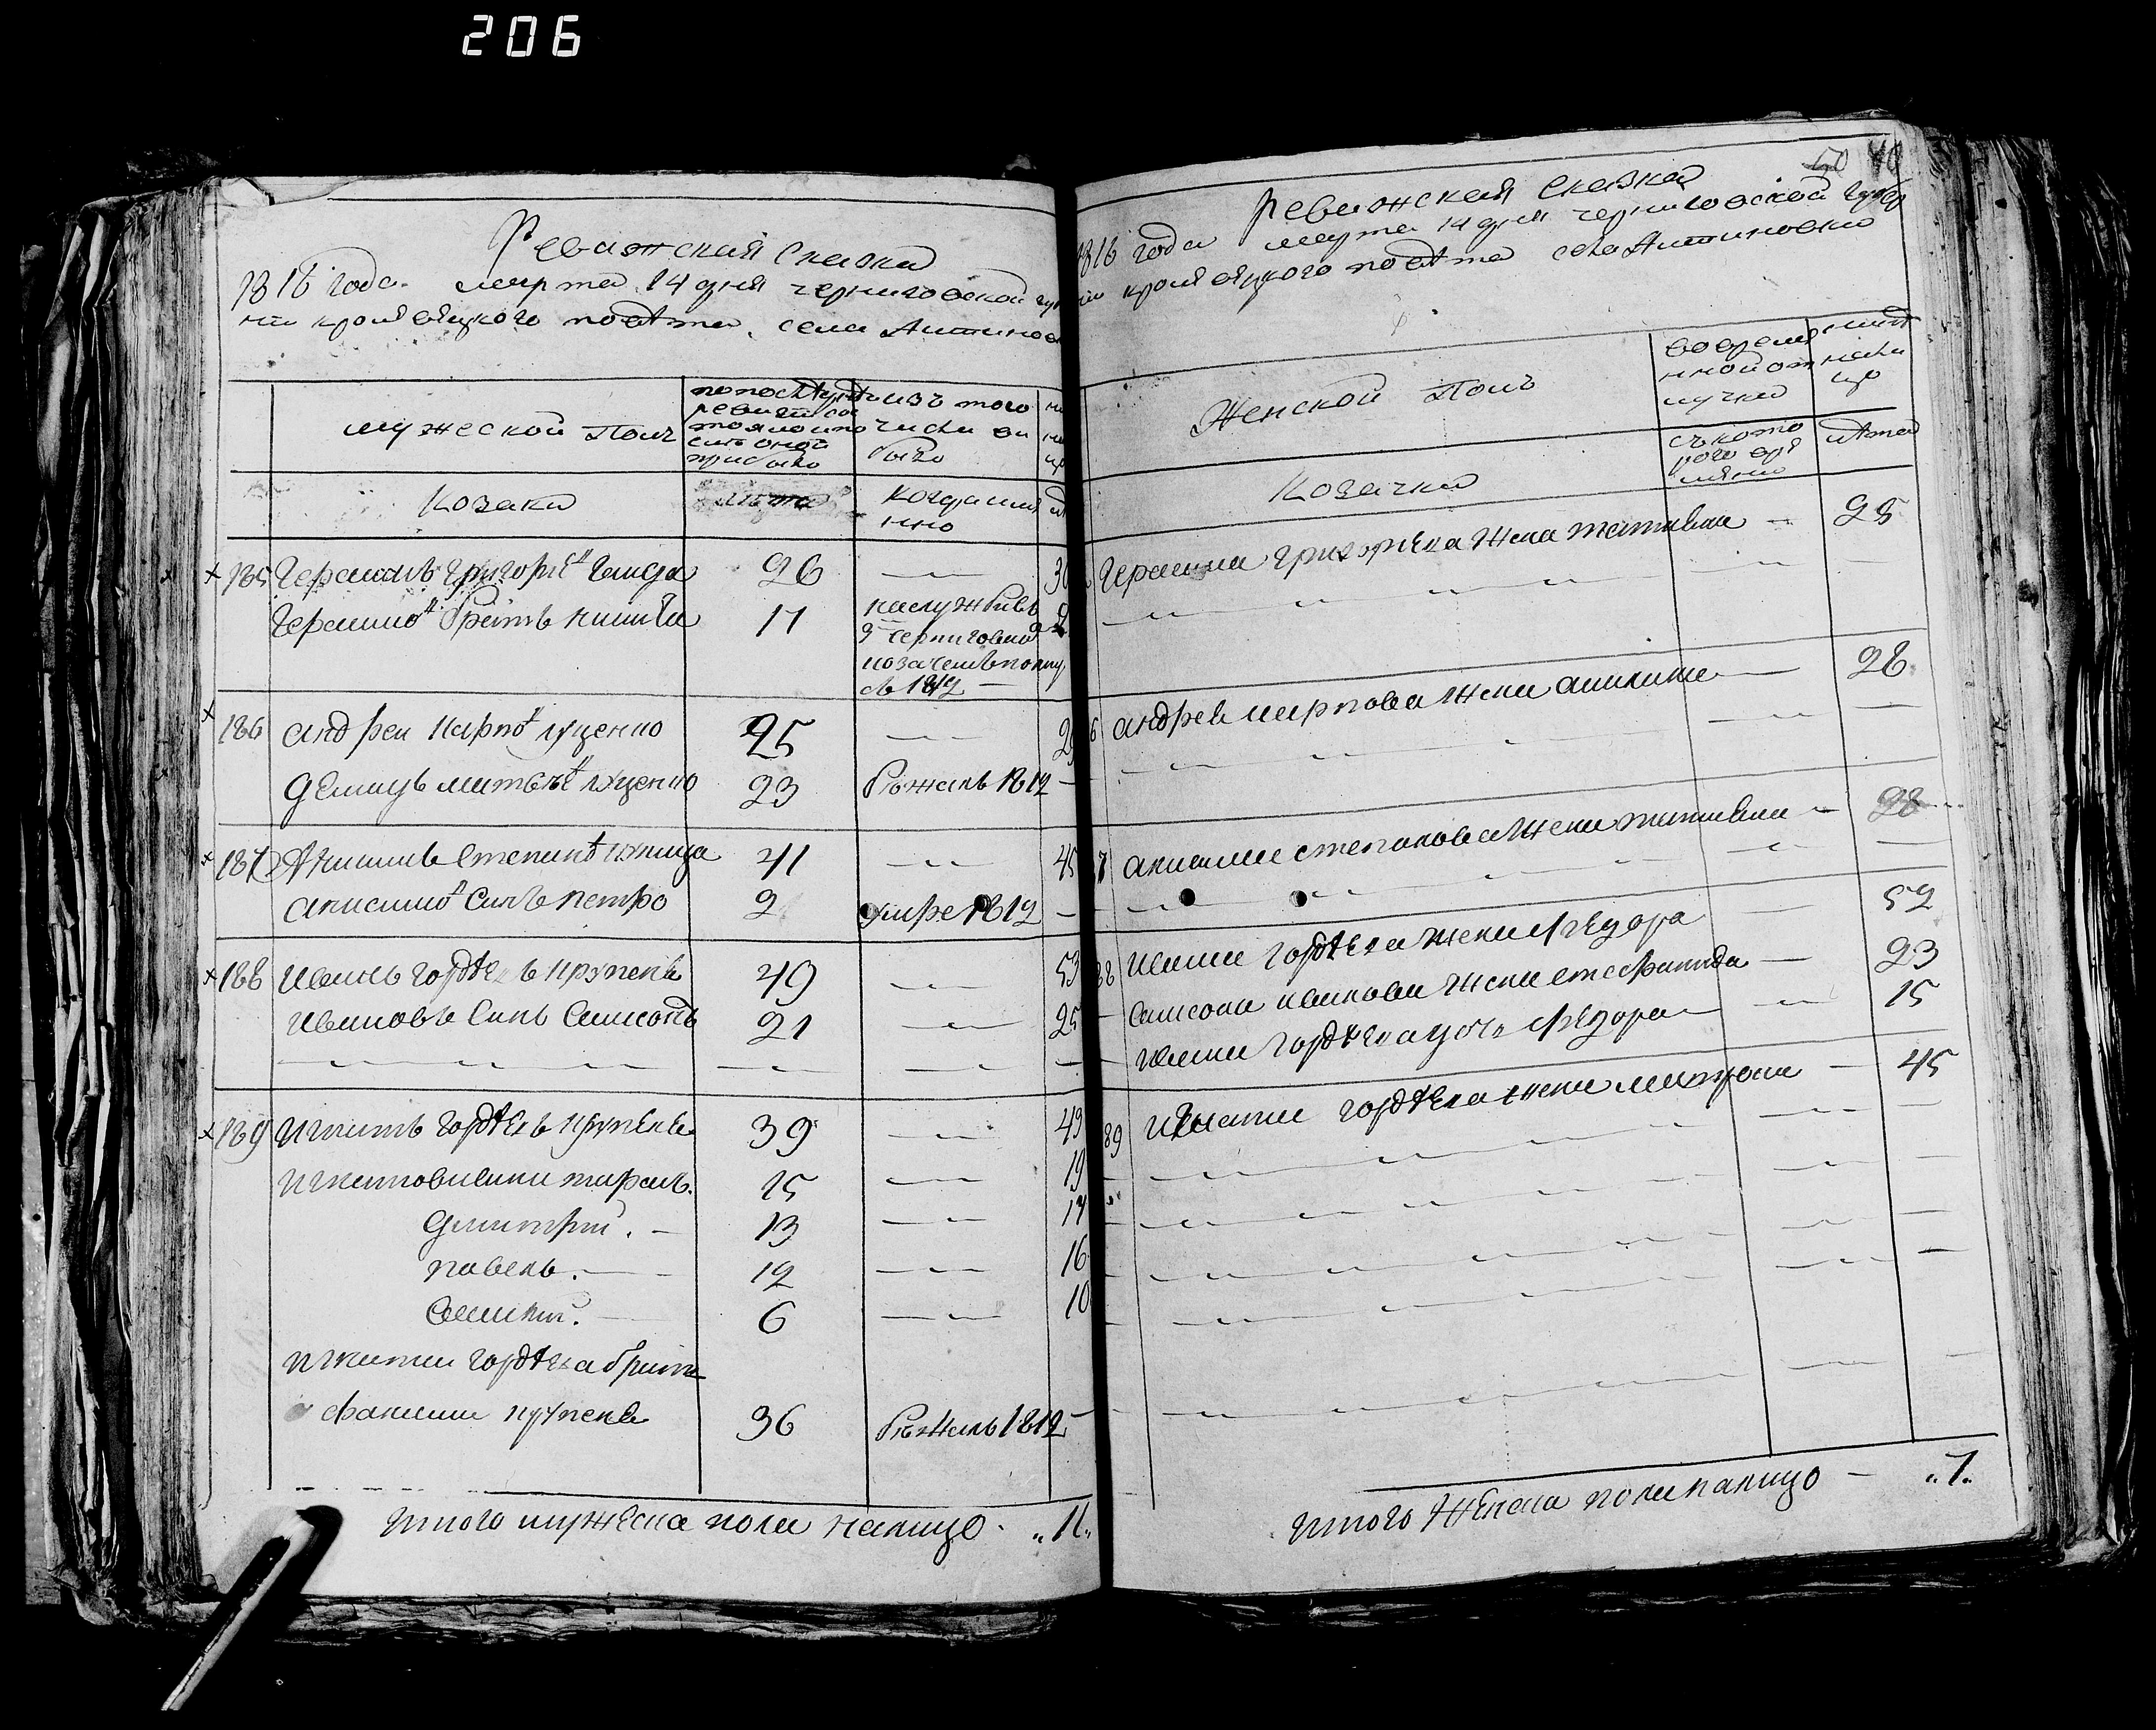 206
Ревижская Сказка
1816 года марта 14 дня черниговской гу
нии кролевецкого повѣта села Литинов
мужеской Полъ
по последней
ревизии сос
тояло и по
слѣ оной
прибыло
изъ того
числа вы
было
Козаки
лѣта
Когда имя
нно
185 Герасимъ Григорьев
26
30
Герасимов братъ Никита
17
на службѣ въ
9 Черниговско
козачемъ полку
съ 1812
186 андреи Карпов луценко
25
2
Демидъ матвѣев луценко
23
бѣжалъ 1812
187 Анисимъ Степанов
41
45
анисимов Синъ Петро
2
умре 1812
188 Иванъ Гордѣевъ
49
53
Ивановъ Синъ Самсонъ
21
25
189 Игнатъ Гордѣевъ
39
43
Игнатови сини тарасъ
15
19
Дмитрий
13
17
павелъ
12
16
6
10
Игнати Гордѣева братъ
36
бѣжалъ 1812
Итого мужеска пола налицо „11„
50 40
Ревижская Сказка
1816 года марта 14 дня черниговской губер
нии кролевецкого повѣта села Литиновки
Женской Полъ
во времен
нной от
лучки
нали
цо
Козачки
съ кото
рого вре
мяни
лѣта
Герасима Григорьева жена татияна 25
6 андрея карпова жена 28
7 анисима степанова жена татияна 28
88 Ивана Гордѣева жена Федора 52
Самсона иванова жена 23
Ивана Гордѣева дочь Федора 15
89 Игнати Гордѣева жена матрона 45
Итого Женска пола налицо „7„